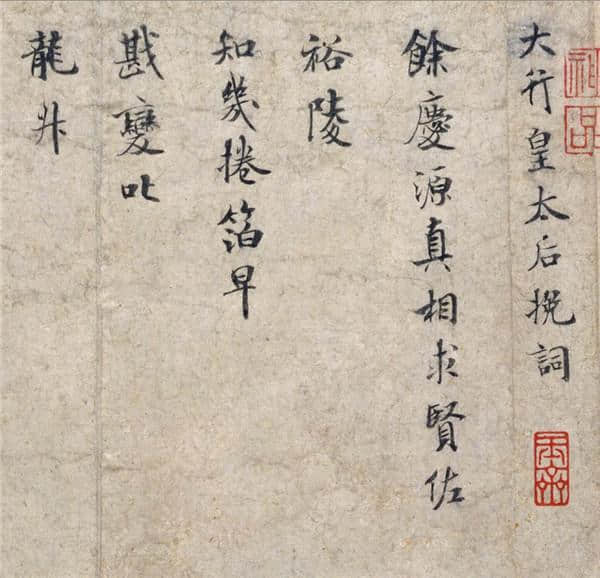 大行皇太后挽詞
餘慶源真相求賢佐
裕陵
知幾捲箔早
戡變叱
龍升